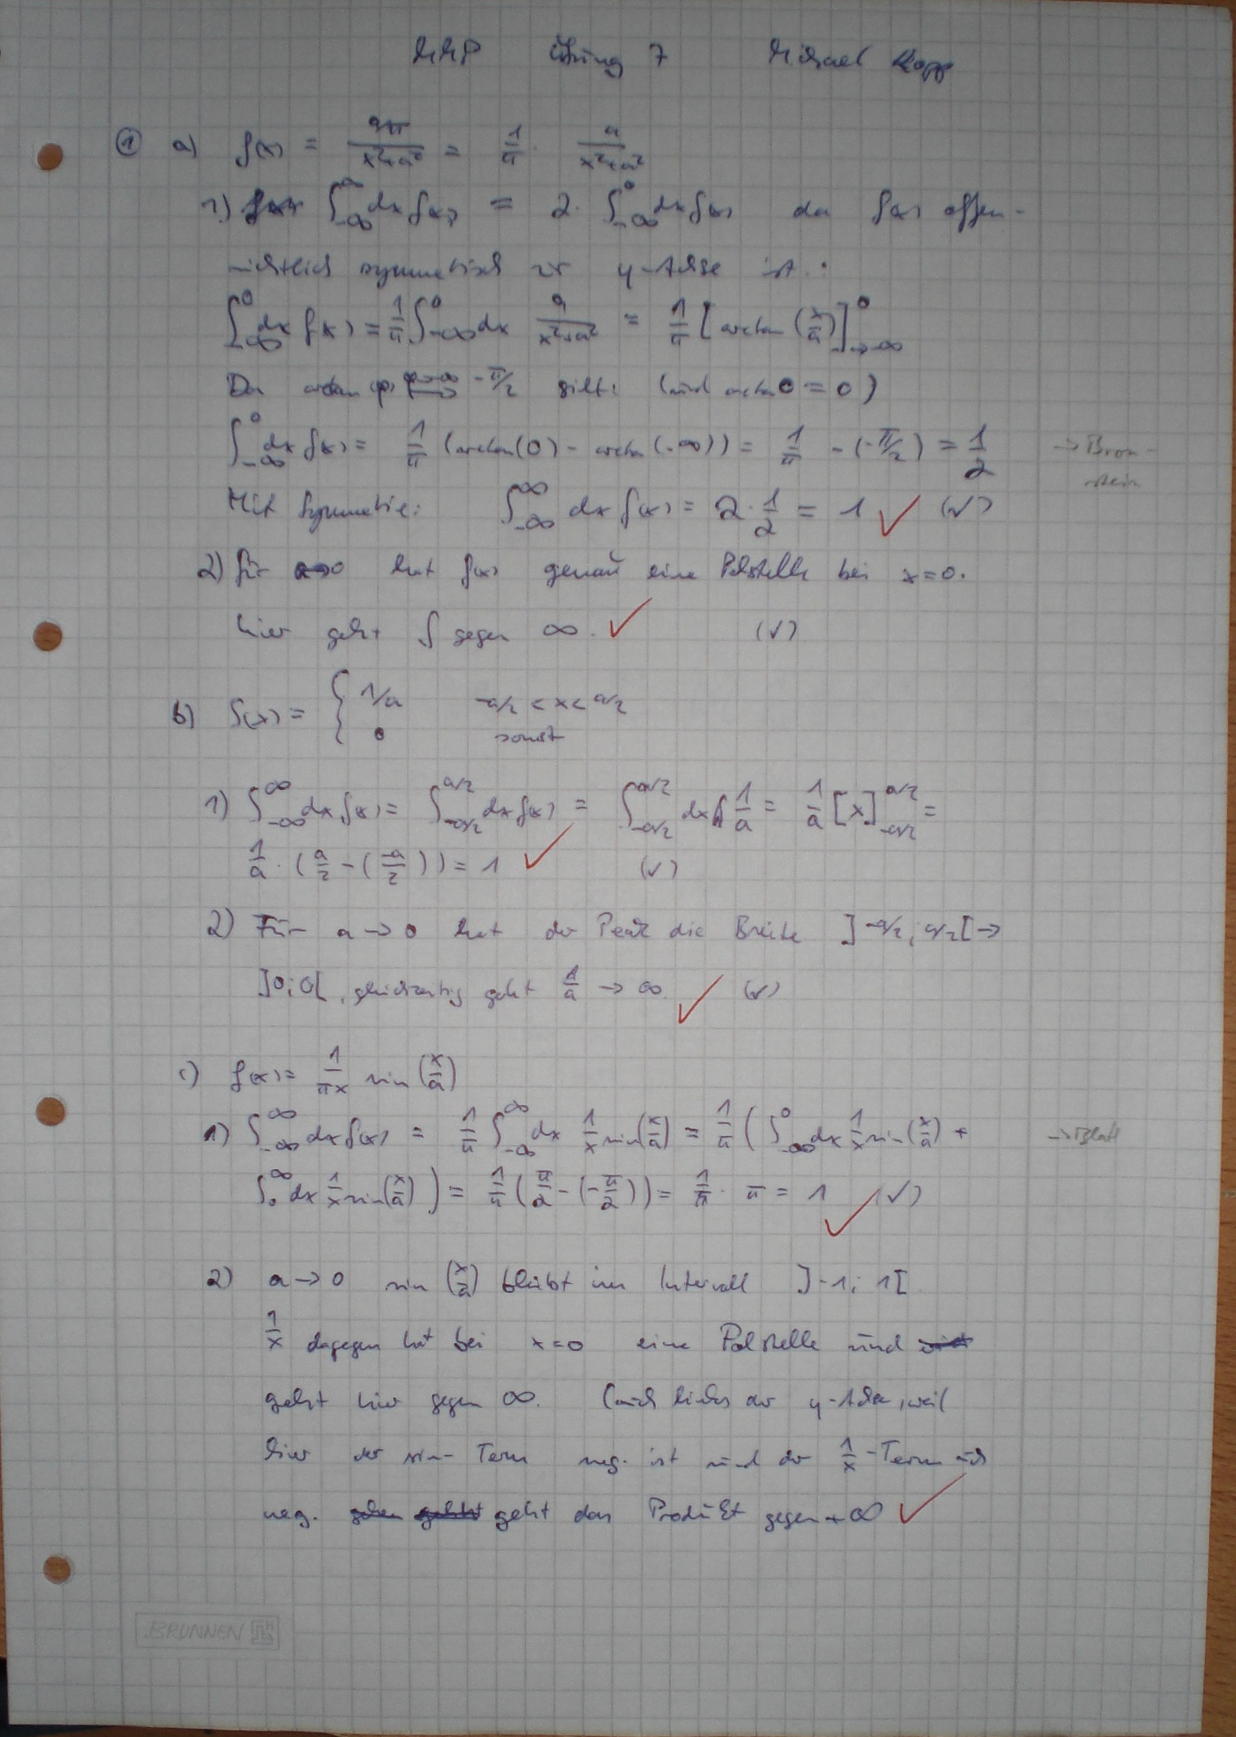 MMP Übung 7 Michael Kopp
① a) f(x) = (a/π)/(x²+a²) = 1/π · a/(x²+a²)
1) ∫_{-∞}^{∞} dx f(x) = 2 · ∫_{-∞}^{0} dx f(x) da f(x) offen-
sichtlich symmetrisch zur y-Achse ist.
∫_{-∞}^{0} dx f(x) = 1/π ∫_{-∞}^{0} dx a/(x²+a²) = 1/π [arctan(x/a)]_{→-∞}^{0}
Da arctan -π/2 gilt: (und arctan 0 = 0)
∫_{-∞}^{0} dx f(x) = 1/π (arctan(0) - arctan(-∞)) = 1/π -(-π/2) = 1/2 → Bron-
stein
Mit Symmetrie: ∫_{-∞}^{∞} dx f(x) = 2 · 1/2 = 1 ✓ (✓)
2) für a→0 hat f(x) genau eine Polstelle bei x=0.
hier geht f gegen ∞. ✓ (✓)
b) f(x) = { 1/a -a/2 < x < a/2
0 sonst
1) ∫_{-∞}^{∞} dx f(x) = ∫_{-a/2}^{a/2} dx f(x) = ∫_{-a/2}^{a/2} dx 1/a = 1/a [x]_{-a/2}^{a/2} =
1/a · (a/2 - (-a/2)) = 1 ✓ (✓)
2) Für a → 0 hat der Peak die Breite ]-a/2; a/2[ →
]0;0[, gleichzeitig geht 1/a → ∞ ✓ (✓)
c) f(x) = 1/(πx) sin(x/a)
1) ∫_{-∞}^{∞} dx f(x) = 1/π ∫_{-∞}^{∞} dx 1/x sin(x/a) = 1/π ( ∫_{-∞}^{0} dx 1/x sin(x/a) + → Blatt
∫_{0}^{∞} dx 1/x sin(x/a) ) = 1/π (π/2 - (-π/2)) = 1/π · π = 1 ✓ (✓)
2) a → 0 sin(x/a) bleibt im Intervall ]-1; 1[
1/x dagegen hat bei x=0 eine Polstelle und
geht hier gegen ∞. (auch links der y-Achse, weil
hier der sin-Term neg. ist und der 1/x-Term auch
neg. geht das Produkt gegen +∞ ✓
BRUNNEN